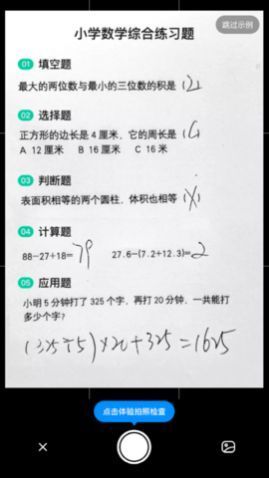 跳过示例
小学数学综合练习题
01 填空题
最大的两位数与最小的三位数的积是( )
02 选择题
正方形的边长是4厘米,它的周长是(C)
A 12厘米 B 16厘米 C 16米
03 判断题
表面积相等的两个圆柱,体积也相等(X)
04 计算题
88-27+18=79 27.6-(7.2+12.3)=2
05 应用题
小明5分钟打了325个字,再打20分钟,一共能打
多少个字?
(325÷5)×20+325=1625
点击体验拍照检查